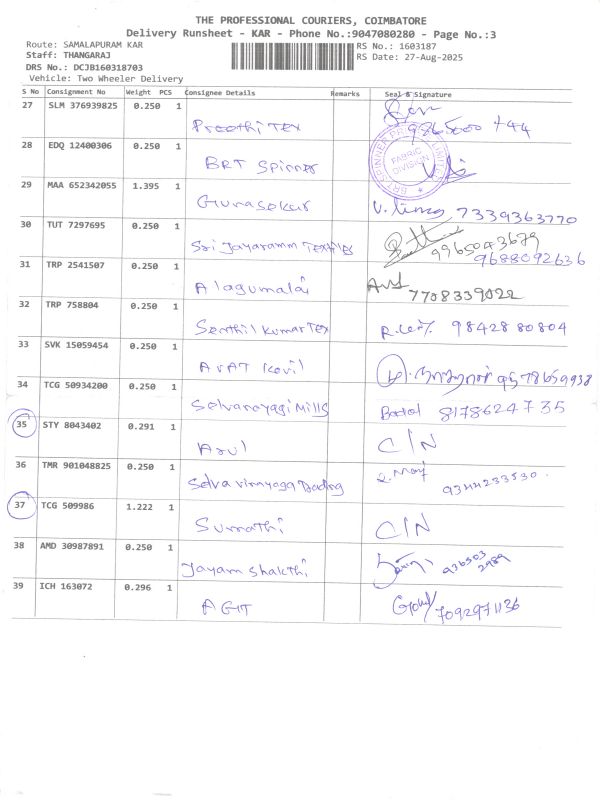 THE PROFESSIONAL COURIERS, COIMBATORE
Delivery Runsheet - KAR - Phone No.:9047080280 - Page No.:3
Route: SAMALAPURAM KAR
RS No.: 1603187
Staff: THANGARAJ
RS Date: 27-Aug-2025
DRS No.: DCJB160318703
Vehicle: Two Wheeler Delivery
S No Consignment No Weight PCS Consignee Details Remarks Seal & Signature
27 SLM 376939825 0.250 1
Preethi TEX
28 EDQ 12400306 0.250 1
BRT Spinner FABRIC DIVISION
29 MAA 652342055 1.395 1
Gunasekar 7339363770
30 TUT 7297695 0.250 1
Sri Jayaramm Textiles 9965043679
9688092636
31 TRP 2541507 0.250 1
Alagumalai 7708339022
32 TRP 758804 0.250 1
Senthil Kumar Tex 9842880804
33 SVK 15059454 0.250 1
AVAT Kovil
34 TCG 50934200 0.250 1
Selvanayagi Mills 8178624735
35 STY 8043402 0.291 1
Arul C/N
36 TMR 901048825 0.250 1
Selva vinayaga Trading 9344233530
37 TCG 509986 1.222 1
Sumathi C/N
38 AMD 30987891 0.250 1
Jayam Shakthi
39 ICH 163072 0.296 1
AGIT 7092971136